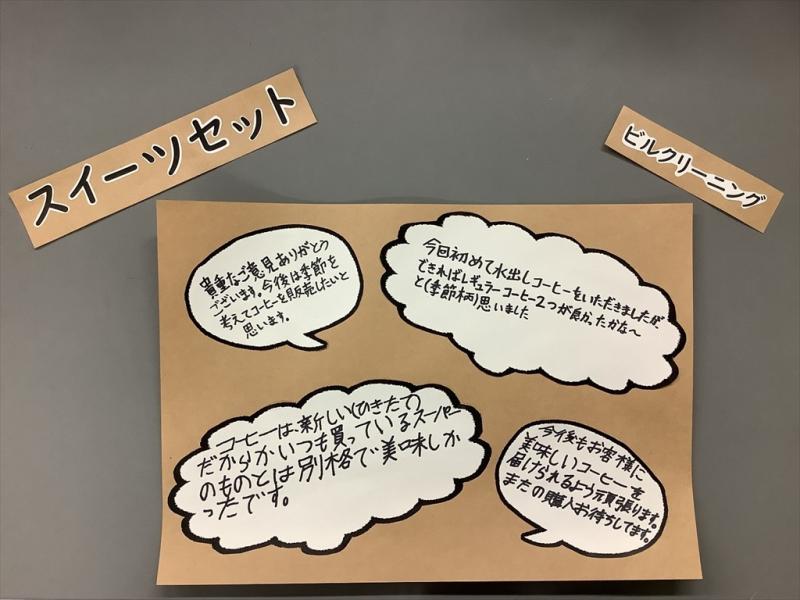 スイーツセット
ビルクリーニング
貴重なご意見ありがとう
ございます。今後は季節を
考えてコーヒーを販売したいと
思います。
今回初めて水出しコーヒーをいただきましたが、
できればレギュラーコーヒー2つが良かったかな〜
と(季節柄)思いました
コーヒーは、新しい(ひきたて)
だからか、いつも買っているスーパー
のものとは別格で美味しか
ったです。
今後もお客様に
美味しいコーヒーを
届けられるよう頑張ります。
またの購入お待ちしてます。